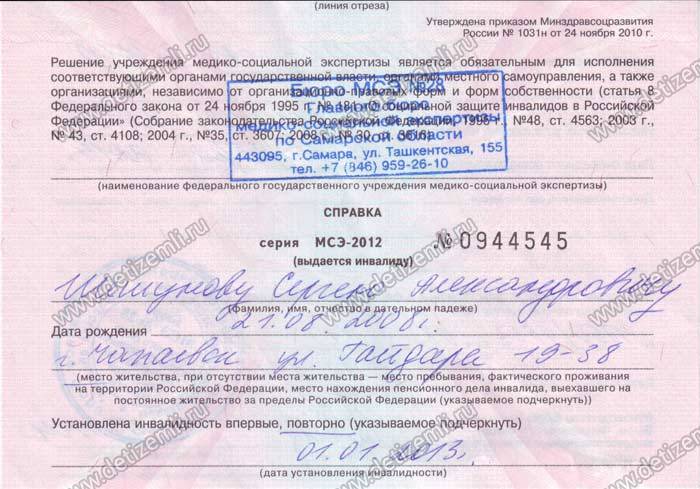 (линия отреза)
Утверждена приказом Минздравсоцразвития
России № 1031н от 24 ноября 2010 г.
Решение учреждения медико-социальной экспертизы является обязательным для исполнения
соответствующими органами государственной власти, органами местного самоуправления, а также
организациями, независимо от организационно-правовых форм и форм собственности (статья 8
Федерального закона от 24 ноября 1995 г. № 181 «О социальной защите инвалидов в Российской
Федерации» (Собрание законодательства Российской Федерации, 1995 г., №48, ст. 4563; 2003 г.,
№ 43, ст. 4108; 2004 г., №35, ст. 3607; 2008 г., № 30, ст. 3616)
Бюро МСЭ №28
Главного бюро
медико-социальной экспертизы
по Самарской области
443095, г.Самара, ул. Ташкентская, 155
тел. +7 (846) 959-26-10
(наименование федерального государственного учреждения медико-социальной экспертизы)
СПРАВКА
серия МСЭ-2012 №0944545
(выдается инвалиду)
Шишунову Сергею Александровичу
(фамилия, имя, отчество в дательном падеже)
Дата рождения 21.08.2008г.
г. Чапаевск ул. Гайдара 19-38
(место жительства, при отсутствии места жительства — место пребывания, фактического проживания
на территории Российской Федерации, место нахождения пенсионного дела инвалида, выехавшего на
постоянное жительство за пределы Российской Федерации (указываемое подчеркнуть))
Установлена инвалидность впервые, повторно (указываемое подчеркнуть)
01.01.2013.
(дата установления инвалидности)
www.detizemli.ru